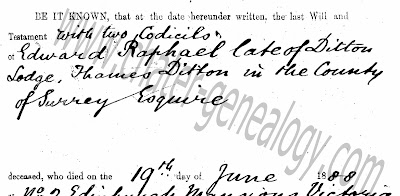 BE IT KNOWN, that at the date hereunder written, the last Will and
Testament with two Codicils
of Edward Raphael late of Ditton
Lodge, Thames Ditton in the County
of Surrey Esquire
deceased, who died on the 19th day of June 1888
at No 2 Edinburgh Mansions Victoria